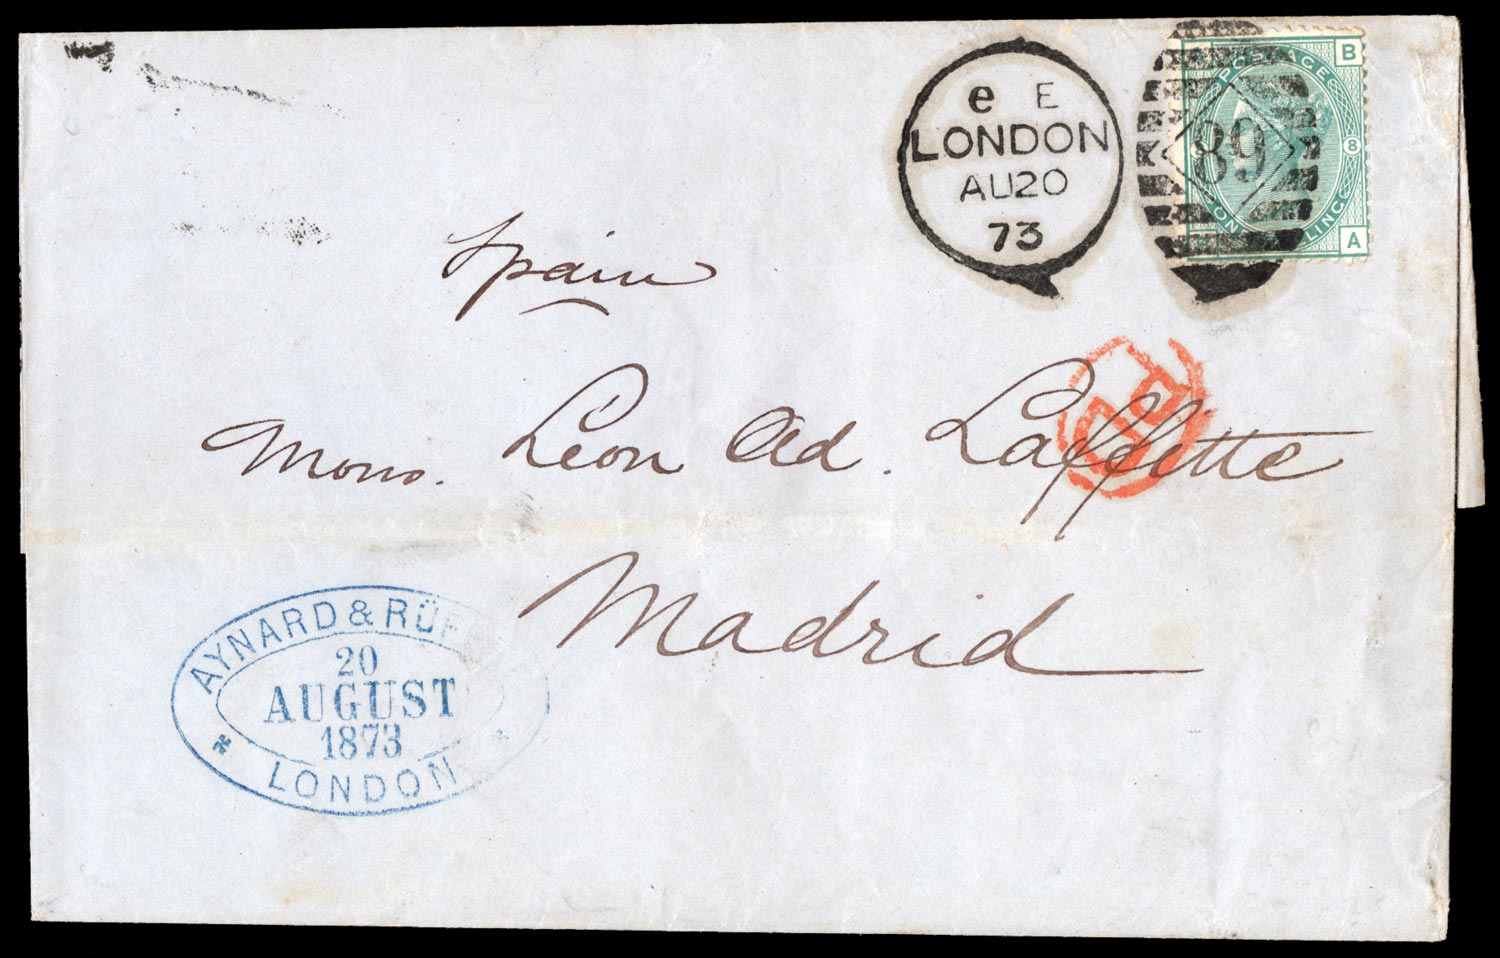 e E
LONDON
AU20
73
89
POSTAGE
B
8
A
Spain
PD
Monsr. Léon Ad. Laffitte
Madrid
AYNARD &
20
AUGUST
1873
LONDON